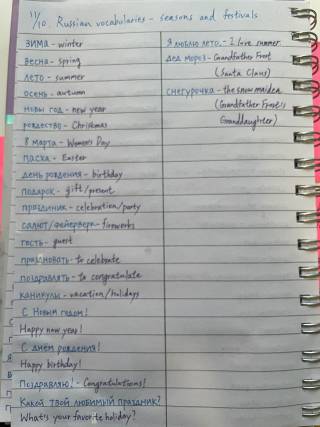 11/10. Russian vocabularies - seasons and festivals
зима - winter
весна - spring
лето - summer
осень - autumn
новы год - new year
рождество - Christmas
8 марта - Women's Day
пасха - Easter
день рождения - birthday
подарок - gift/present
праздиник - celebration/party
салют/фейерверк - fireworks
гость - guest
праздновать - to celebrate
поздравлять - to congratulate
каникулы - vacation/holidays
С Новым годом!
Happy new year!
С днём рождения!
Happy birthday!
Поздравляю! - Congratulations!
Какой твой любимый праздник?
What's your favorite holiday?
Я люблю лето. - I love summer.
дед мороз - Grandfather Frost
(Santa Claus)
снегурочка - the snow maiden
(Grandfather Frost's
Granddaughter)